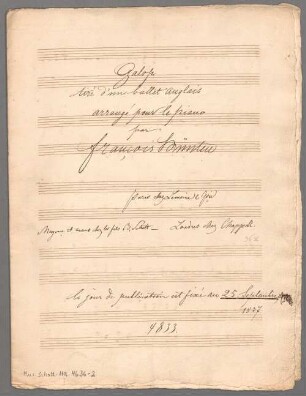 Galop
tiré d'une ballet anglais
arrangé pour le piano
par
François Hünten
Paris chez Lemoine &
Mayence et Anvers chez les fils B. Schott — Londres chez Chappell
le jour de publication est fixé au 25 Septembre
1837
4833.
Mus. Schott. Ha 4636-2